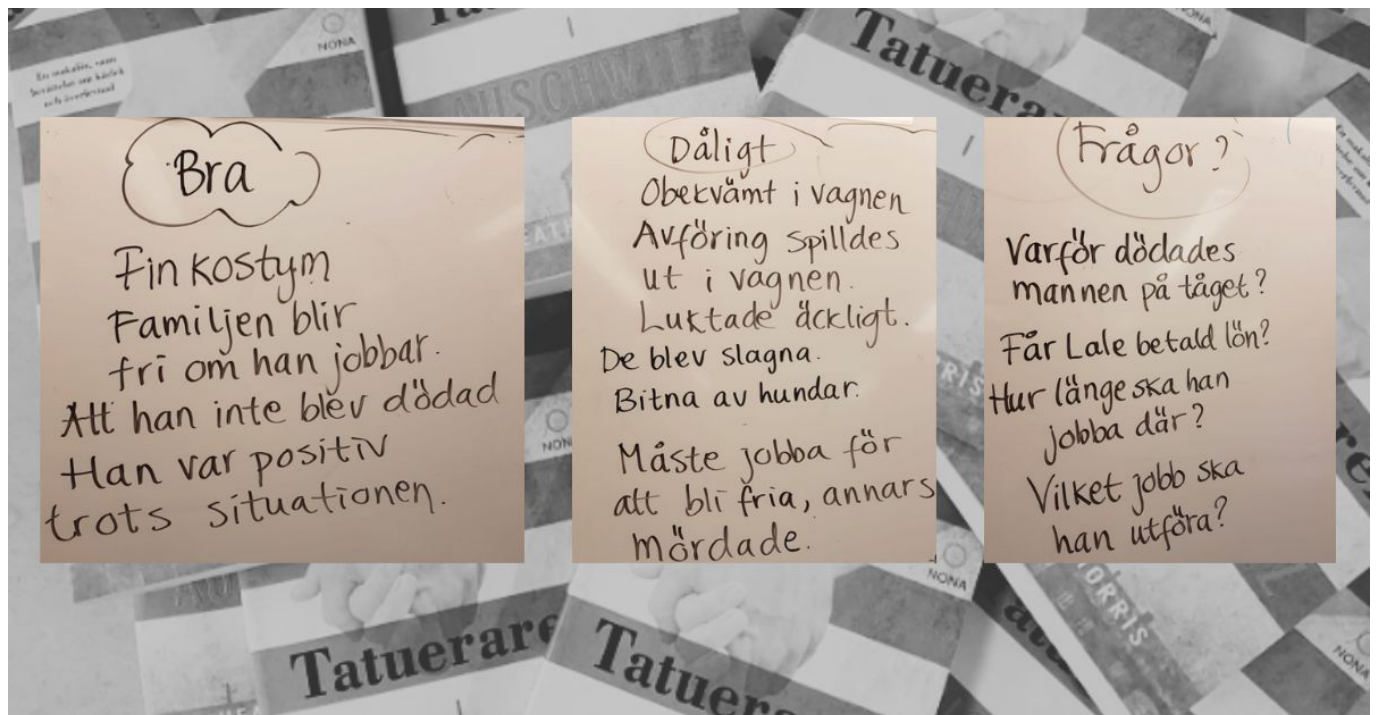 Bra
Fin kostym
Familjen blir
fri om han jobbar.
Att han inte blev dödad
Han var positiv
trots situationen.
Dåligt
Obekvämt i vagnen
Avföring spilldes
ut i vagnen.
Luktade äckligt.
De blev slagna.
Bitna av hundar.
Måste jobba för
att bli fria, annars
mördade.
Frågor?
Varför dödades
mannen på tåget?
Får Lale betald lön?
Hur länge ska han
jobba där?
Vilket jobb ska
han utföra?
NONA
AUSCHWITZ
Tatuerare
I
NONA
NONA
Tatuerare
I
Tatuerare
MORRIS
NONA